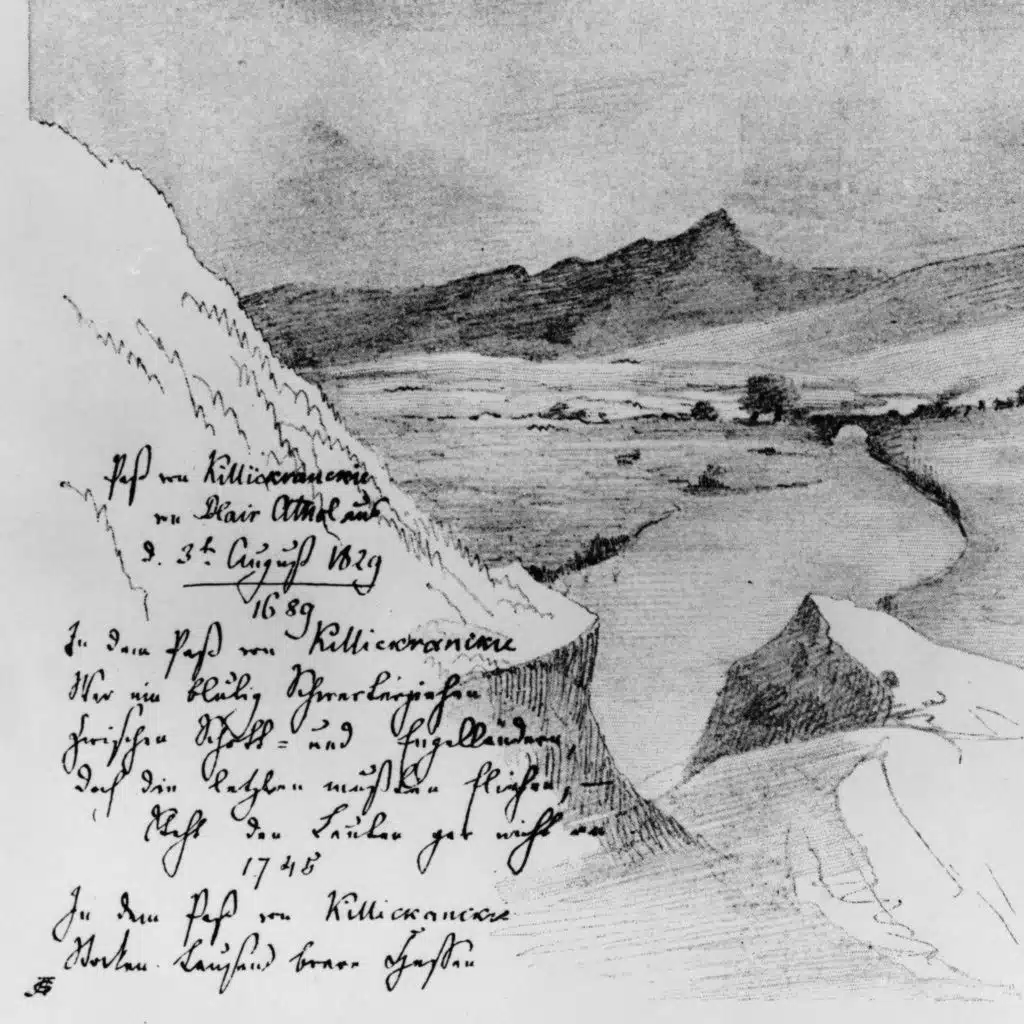 Paß von Killiekrankie
von Blair Athol aus
d. 3t August 1829
1689
In dem Paß von Killiecrankie
War ein blutig Schwerterziehen
Zwischen Schott= und Engelländern,
Doch die letzten mußten fliehen,
Steht den Leuten gar nicht an
1745
In dem Paß von Killiecrankie
Stocken tausend brave Hessen